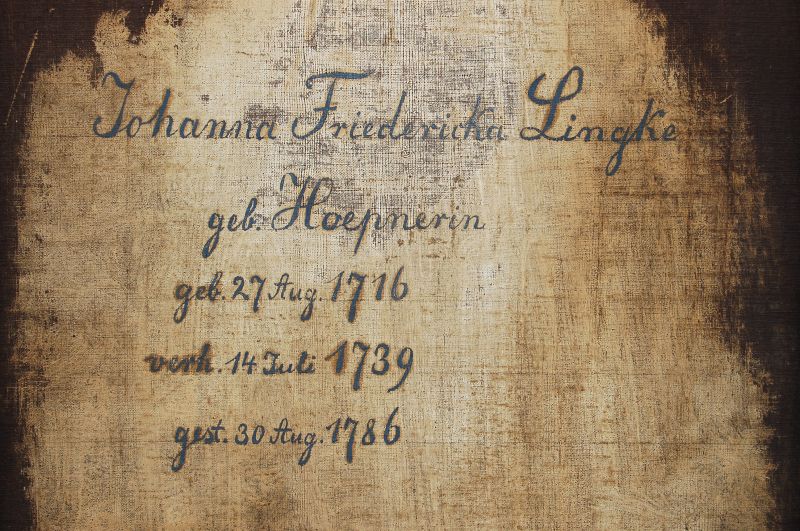 Johanna Friedericka Lingke
geb. Hoepnerin
geb. 27 Aug. 1716
verh. 14 Juli 1739
gest. 30 Aug. 1786